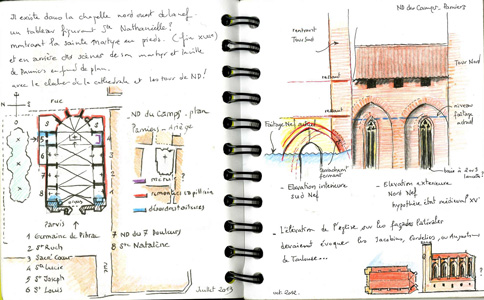 Il existe dans la chapelle nord ouest de la nef
un tableau figurant Ste Nathanielle?
montrant la sainte martyre en pieds. (fin XVIIe)
et en arrière des scènes de son martyr et la ville
de Pamiers en fond de plan.
avec le clocher de la cathédrale et les tour de ND!
rue
N
ND du Camp. plan
Pamiers - ariège
?
remontées
démontaitures
parvis
1 Germaine de Pibrac
2 St Roch
3 Sacré Coeur
4 Ste Lucie
5 St Joseph
6 St Louis
7 ND du 7 Douleurs
8 Ste Natalène
Juillet 2013
ND du Camp. Pamiers
Tour Sud
Tour Nord
niveau
faitage
actuel
Faitage Nef actuel
- Elévation intérieure
Sud Nef
- Elévation extérieure
Nord Nef
hypothèse état médiéval XVe
- L'élévation de l'église sur les façades latérales
devaient évoquer les Jacobins, Cordeliers, ou Augustins
de Toulouse...